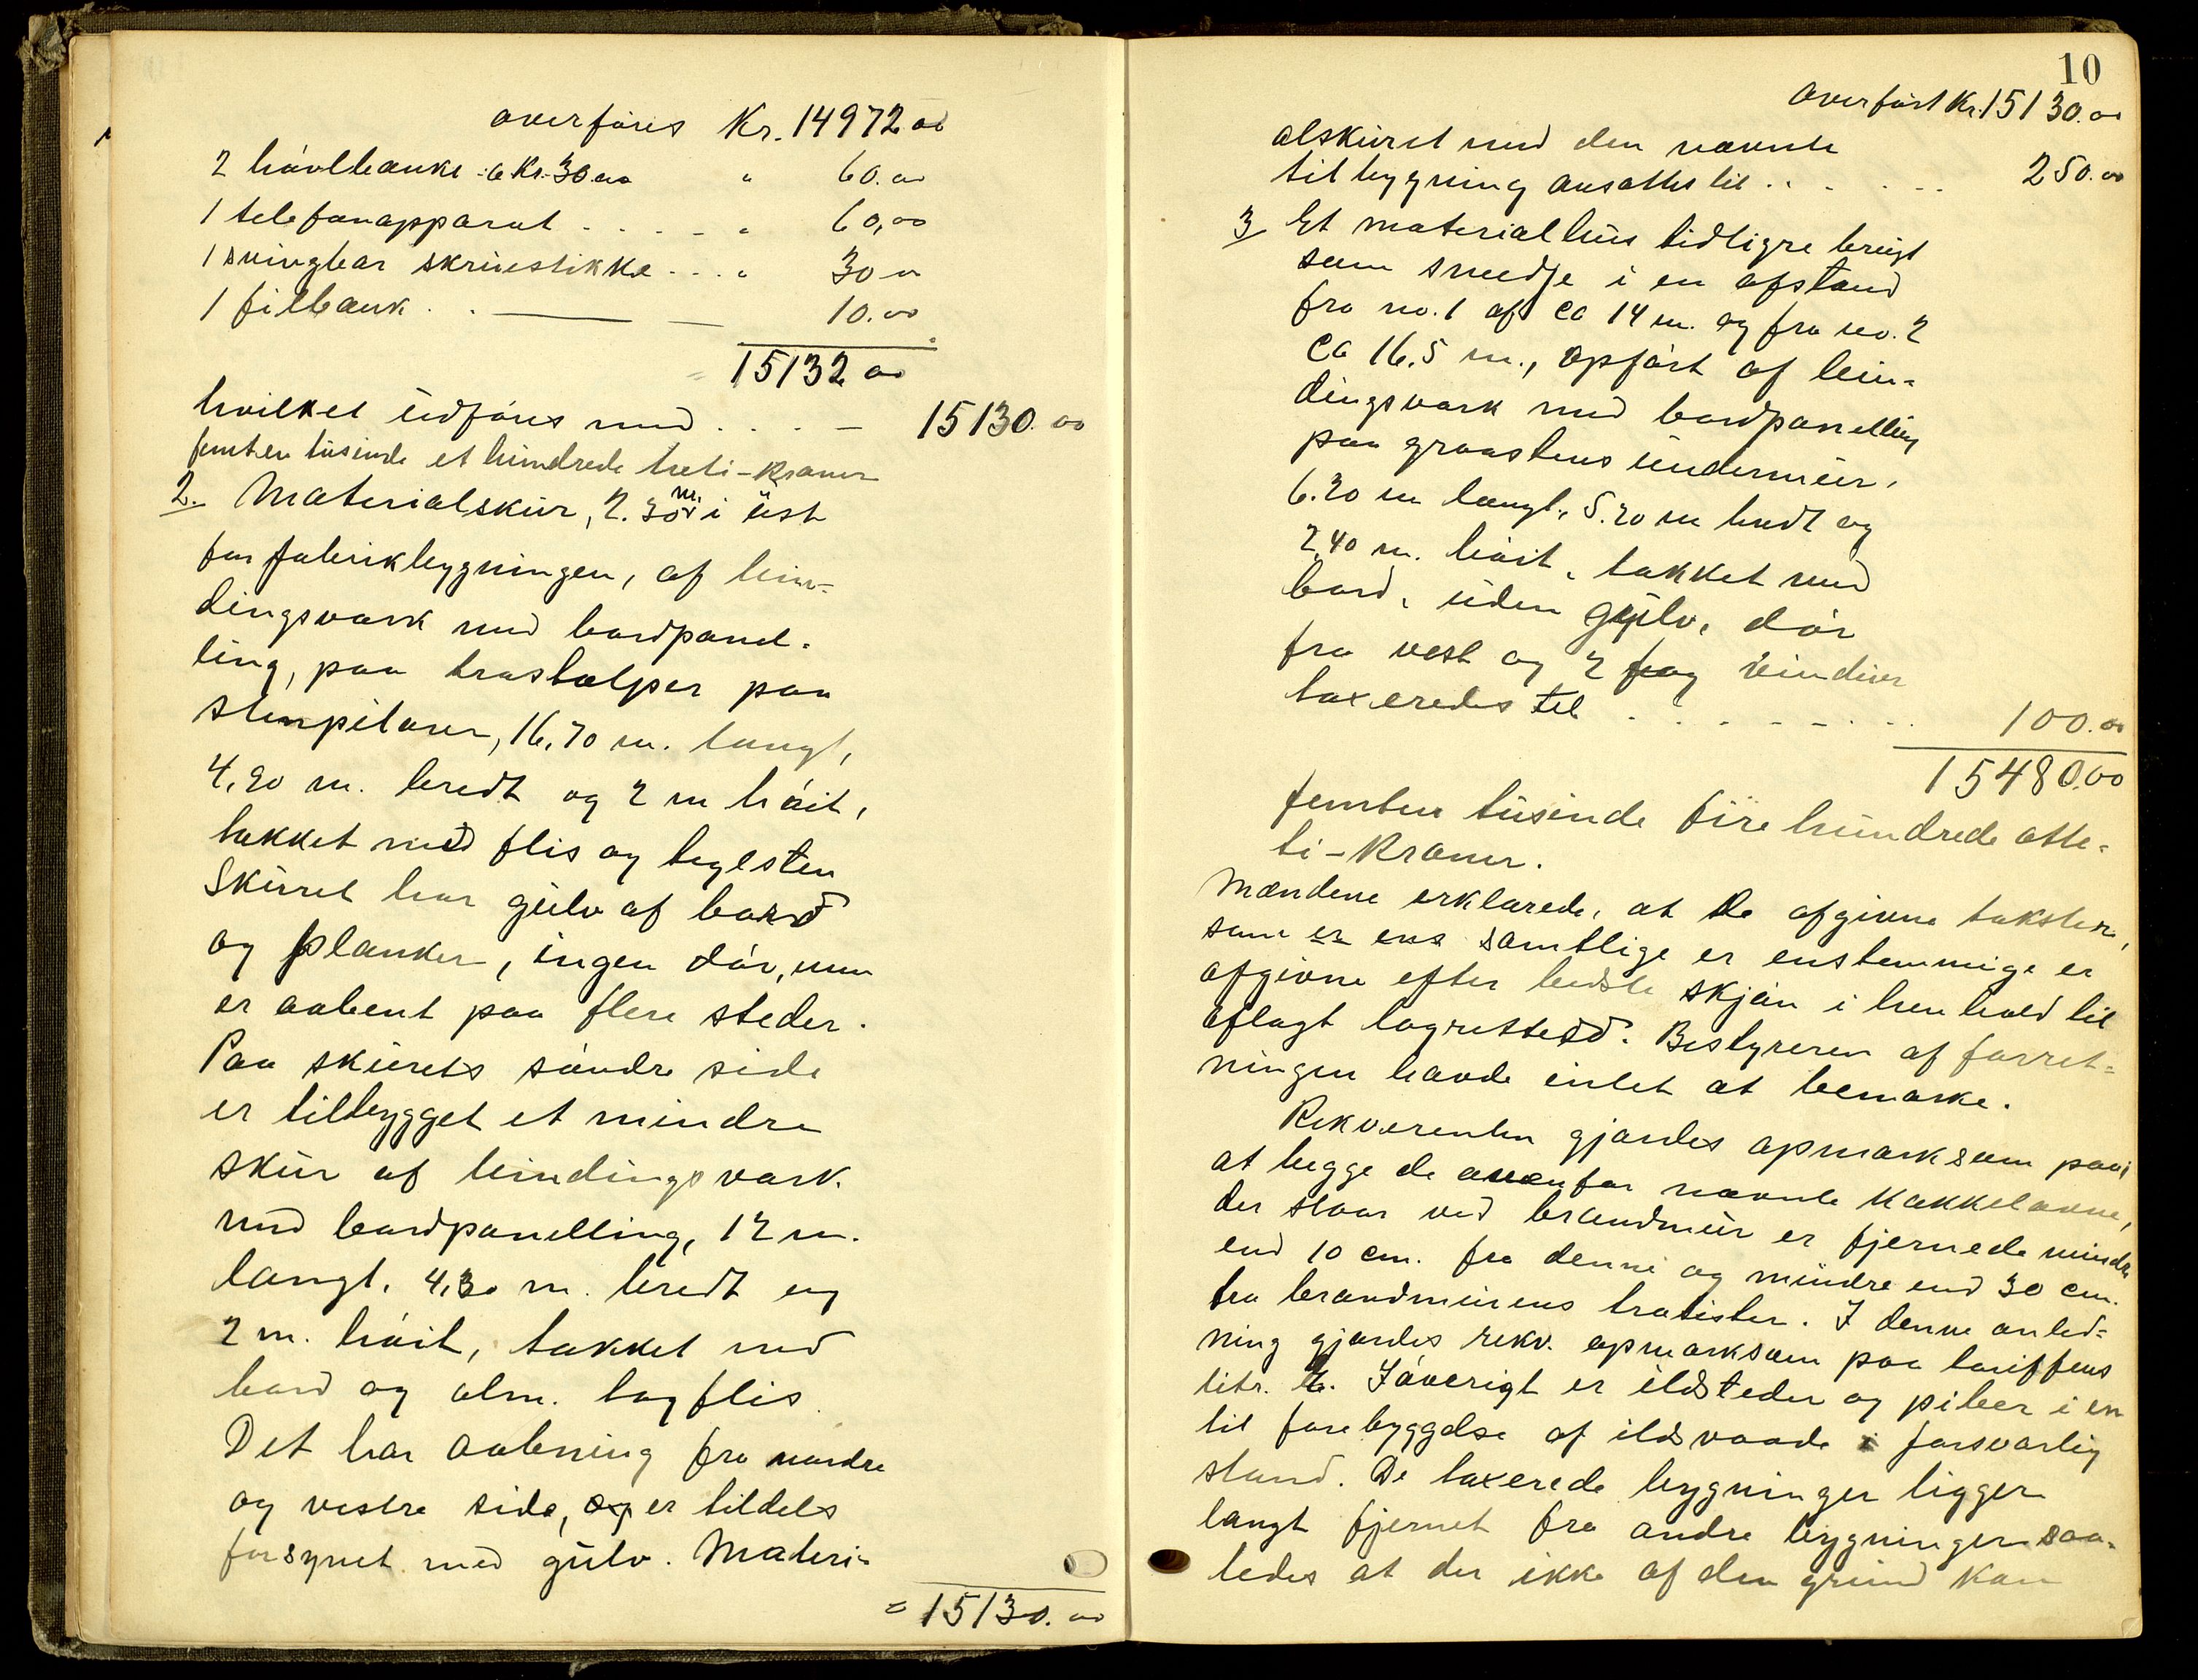 overføres Kr. 14972.00
2 høvlbænke a Kr. 30.00 " 60.00
1 telefonapparat . . . . . " 60,00
1 svingbar skruestikke . . . " 30.00
1 filbænk . . — — 10.00
15132.00
hvilket udføres med . . . . — 15130.00
femten tusinde et hundrede treti-kroner
2. Materialskur, 2.30 m. i øst
for fabrikbygningen, af bin-
dingsværk med bordpanel-
ling, paa træstolper paa
stenpilarer, 16,70 m. langt,
4.20 m. bredt og 2 m høit,
tækket med flis og teglsten
Skuret har gulv af bord
og planker, ingen dør, men
er aabent paa flere steder.
Paa skurets søndre side
er tilbygget et mindre
skur af bindingsværk
med bordpanelling, 12 m.
langt, 4,30 m. bredt og
2 m. høit, tækket med
bord og alm. tagflis.
Det har aabning fra nordre
og vestre side, og er tildels
forsynet med gulv. Materi-
= 15130.00
10
overført Kr. 15130.00
alskuret med den nævnte
tilbygning ansattes til . . . . . . 250.00
3 Et materialhus tidligre brugt
som smedje i en afstand
fra no. 1 af ca 14 m. og fra no. 2
ca 16,5 m., opført af bin-
dingsværk med bordpanelling
paa graastens undermur,
6.20 m langt, 5.20 m bredt og
2,40 m. høit, tækket med
bord, uden gulv, dør
fra vest og 2 fag vinduer
taxeredes til . . . . . . . . 100.00
15480.00
femten tusinde fire hundrede otte-
ti-kroner.
Mændene erklærede, at de afgivne takster,
som er ens samtlige er enstemmige er
afgivne efter bedste skjøn i henhold til
aflagt lagretteed. Bestyreren af forret-
ningen havde intet at bemærke.
Rekvirenten gjordes opmærksom paa,
at begge de ovenfor nævnte kakkelovne,
der staar ved brandmur er fjernede mindre
end 10 cm. fra denne og mindre end 30 cm.
fra brandmurens trælister. I denne anled-
ning gjordes rekv. opmærksom paa tariffens
litr. b. Iøverigt er ildsteder og piber i en
til forebyggelse af ildsvaade forsvarlig
stand. De taxerede bygninger ligger
langt fjernet fra andre bygninger saa-
ledes at der ikke af den grund kan